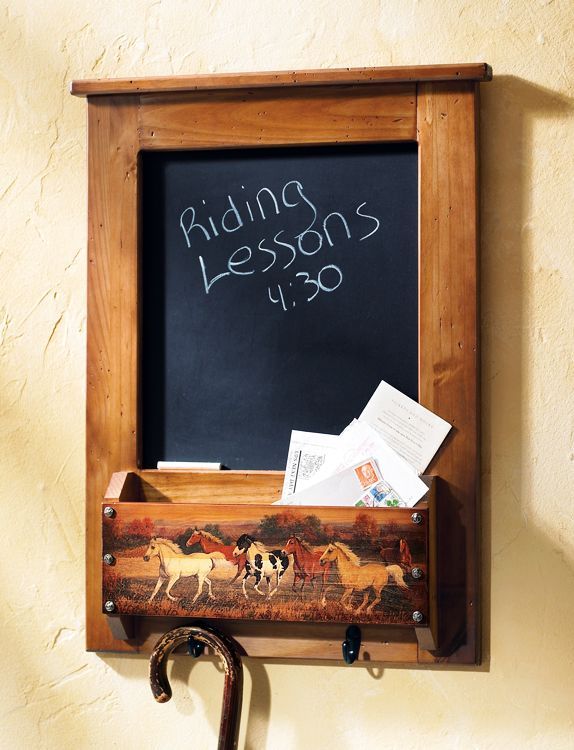 Riding
Lessons
4:30